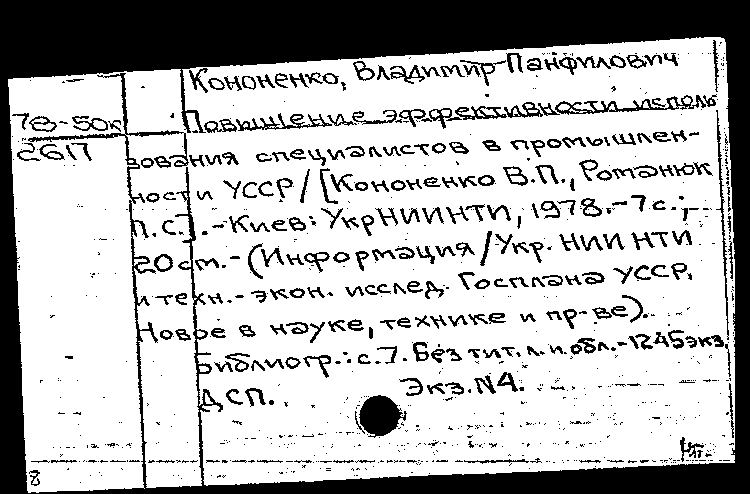 Кононенко, Владимир Панфилович
78-50к Повышение эффективности исполь
2617 зования специалистов в промышлен-
ности УССР / [Кононенко В.П., Романюк
П.С.]. - Киев: УкрНИИНТИ, 1978. - 7 с.;
20 см. - (Информация / Укр. НИИ НТИ
и техн.-экон. исслед. Госплана УССР.
Новое в науке, технике и пр-ве).
Библиогр.: с.7. Без тит. л. и обл. - 1245 экз.
ДСП. Экз. N4.
8